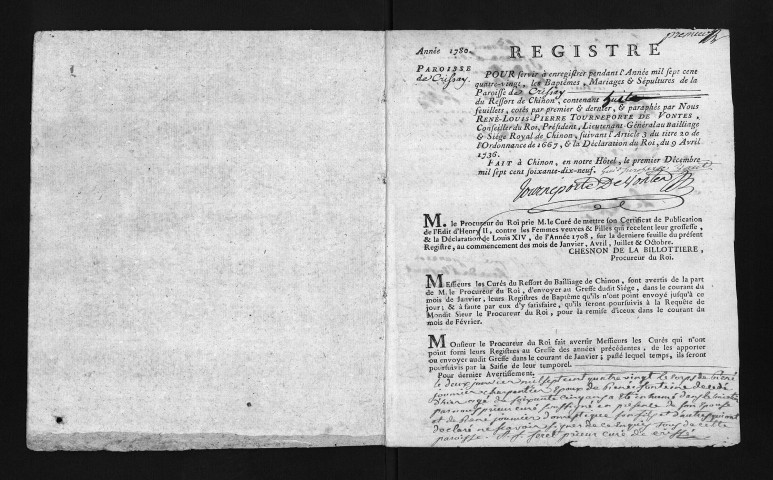 premier
Année 1780.
REGISTRE
PAROISSE
de Crissay
POUR servir à enregistrer pendant l'Année mil sept cent
quatre-vingt, les Baptêmes, Mariages & Sépultures de la
Paroisse de Crissay
du Ressort de Chinon, contenant huit
feuillets, cotés par premier & dernier, & paraphés par Nous
RENÉ-LOUIS-PIERRE TOURNEPORTE DE VONTES,
Conseiller du Roi, Président, Lieutenant-Général au Bailliage
& Siége Royal de Chinon, suivant l'Article 3 du titre 20 de
l'Ordonnance de 1667, & la Déclaration du Roi, du 9 Avril
1736.
FAIT à Chinon, en notre Hôtel, le premier Décembre
mil sept cent soixante-dix-neuf.
Tourneporte De Vontes
M. le Procureur du Roi prie M. le Curé de mettre son Certificat de Publication
de l'Edit d'Henry II, contre les Femmes veuves & Filles qui recelent leur grossesse,
& la Déclaration de Louis XIV, de l'Année 1708, sur la derniere feuille du présent
Registre, au commencement des mois de Janvier, Avril, Juillet & Octobre.
CHESNON DE LA BILLOTTIERE,
Procureur du Roi.
MESSIEURS les Curés du Ressort du Bailliage de Chinon, sont avertis de la part
de M. le Procureur du Roi, d'envoyer au Greffe dudit Siége, dans le courant du
mois de Janvier, leurs Registres de Baptême qu'ils n'ont point envoyé jusqu'à ce
jour; & à faute par eux d'y satisfaire, qu'ils seront poursuivis à la Requête de
Mondit Sieur le Procureur du Roi, pour la remise d'iceux dans le courant du
mois de Février.
MOnsieur le Procureur du Roi fait avertir Messieurs les Curés qui n'ont
point fourni leurs Registres au Greffe des années précédentes, de les apporter
ou envoyer audit Greffe dans le courant de Janvier; passé lequel temps, ils seront
poursuivis par la Saisie de leur temporel.
Pour dernier Avertissement.
le deux janvier mil sept cent quatre vingt le corps de René
fournier charpentier Epoux de
agé de soixante cinq ans a été inhumé dans le
par nous prieur curé soussigné en présence de son Epouse
et de René fournier son fils et d'autres qui ont
declaré ne scavoir signer de ce enquis tous de cette
paroisse. foret prieur curé de crissé